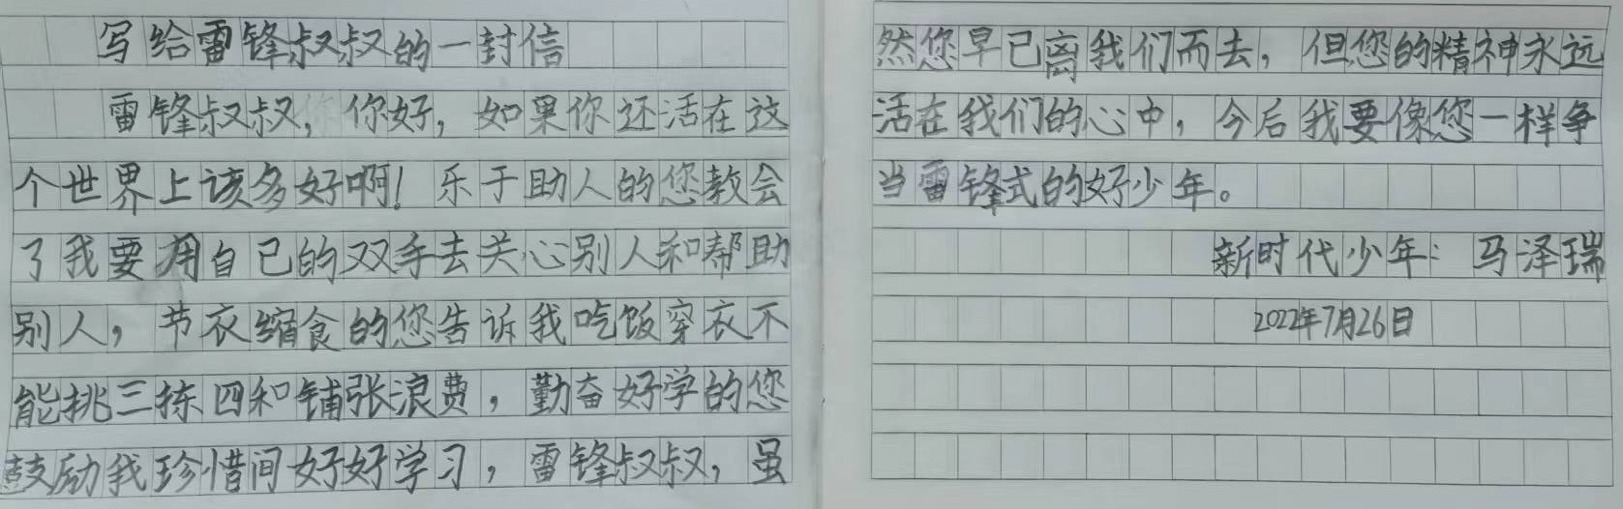 写给雷锋叔叔的一封信
雷锋叔叔，你好，如果你还活在这
个世界上该多好啊！乐于助人的您教会
了我要用自己的双手去关心别人和帮助
别人，节衣缩食的您告诉我吃饭穿衣不
能挑三拣四和铺张浪费，勤奋好学的您
鼓励我珍惜间好好学习，雷锋叔叔，虽
然您早已离我们而去，但您的精神永远
活在我们的心中，今后我要像您一样争
当雷锋式的好少年。
新时代少年：马泽瑞
2022年7月26日